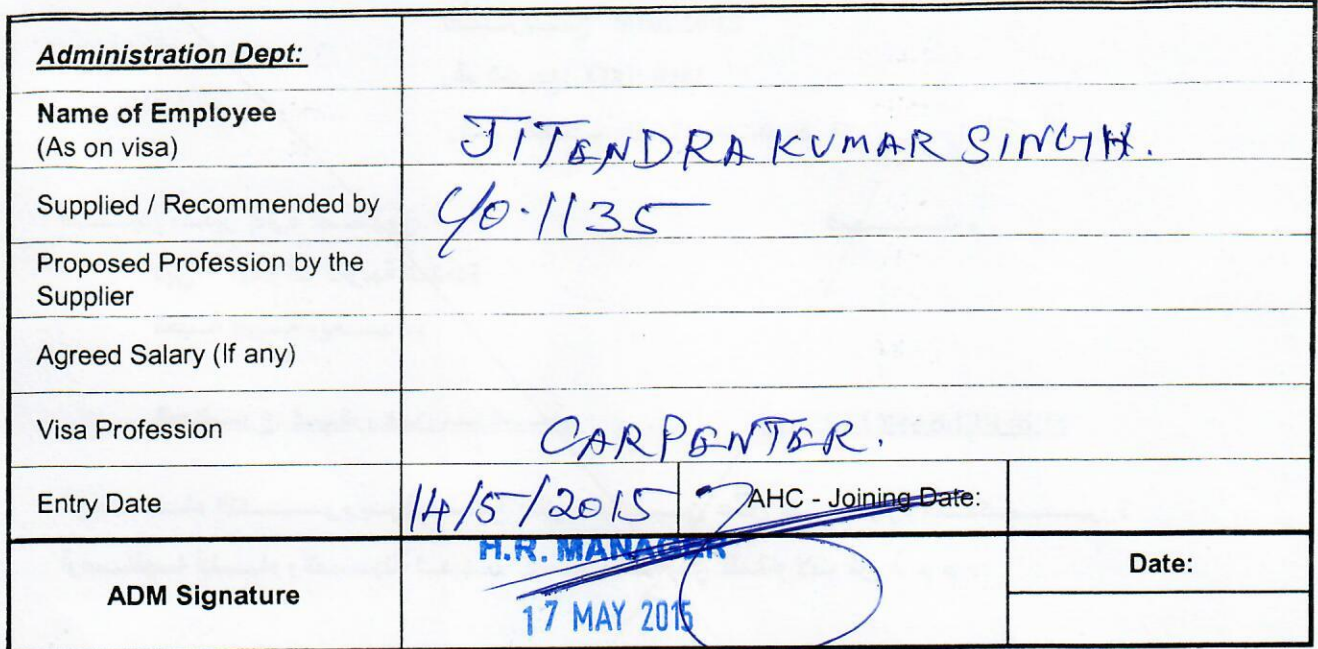 Administration Dept:
Name of Employee
(As on visa)
JITENDRA KUMAR SINGH.
Supplied / Recommended by
1135
Proposed Profession by the
Supplier
Agreed Salary (If any)
Visa Profession
CARPENTER.
Entry Date
14/5/2015
AHC - Joining Date:
H.R. MANAGER
ADM Signature
17 MAY 2015
Date: